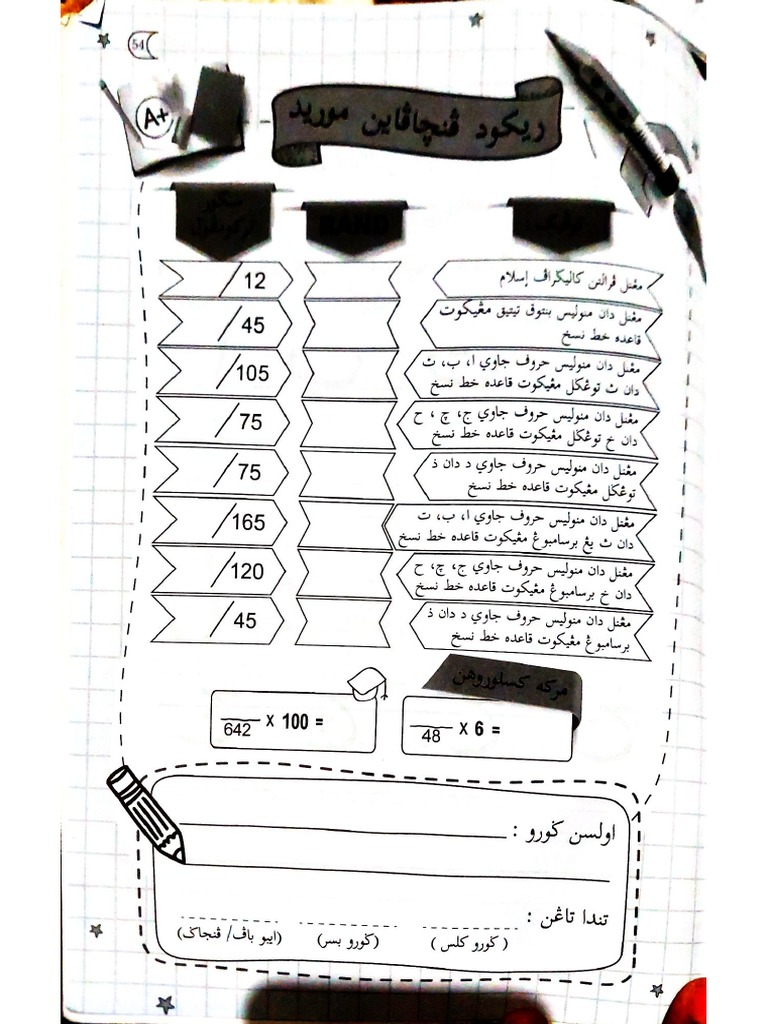 54
A+
ريكود ڤنچاڤاين موريد
سكور
BAND
مڠنل ڤرالتن كاليݢرافي إسلام
/12
مڠنل دان منوليس بنتوق تيتيق مڠيكوت
قاعده خط نسخ
/45
مڠنل دان منوليس حروف جاوي ا، ب، ت
دان ث توڠݢل مڠيكوت قاعده خط نسخ
/105
مڠنل دان منوليس حروف جاوي ج، چ، ح
دان خ توڠݢل مڠيكوت قاعده خط نسخ
/75
مڠنل دان منوليس حروف جاوي د دان ذ
توڠݢل مڠيكوت قاعده خط نسخ
/75
مڠنل دان منوليس حروف جاوي ا، ب، ت
دان ث يڠ برسامبوڠ مڠيكوت قاعده خط نسخ
/165
مڠنل دان منوليس حروف جاوي ج، چ، ح
دان خ برسامبوڠ مڠيكوت قاعده خط نسخ
/120
مڠنل دان منوليس حروف جاوي د دان ذ
برسامبوڠ مڠيكوت قاعده خط نسخ
/45
مركه كسلوروهن
___ x 6 =
48
___ x 100 =
642
اولسن ݢورو :
تندا تاڠن :
(ݢورو كلس)
(ݢورو بسر)
(ايبو باڤ/ ڤنجاݢ)